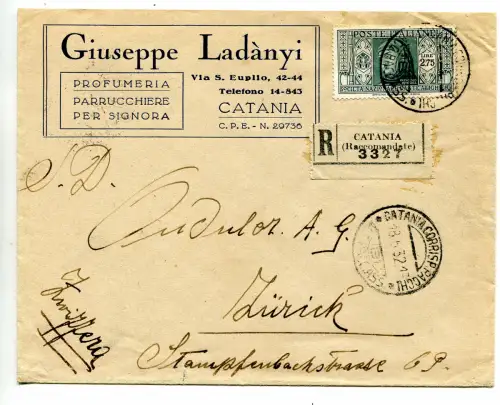 Giuseppe Ladànyi
PROFUMERIA
PARRUCCHIERE
PER SIGNORA
Via S. Euplio, 42-44
Telefono 14-843
CATÀNIA
C. P. E. - N. 29736
POSTE ITALIANE
LIRE 2,75
R
CATANIA
(Raccomandate)
3327
S. D.
Ondulor A. G.
Zürich
Stampfenbachstrasse 69.
Svizzera
CATANIA CORRISP. PACCHI
18.4.32